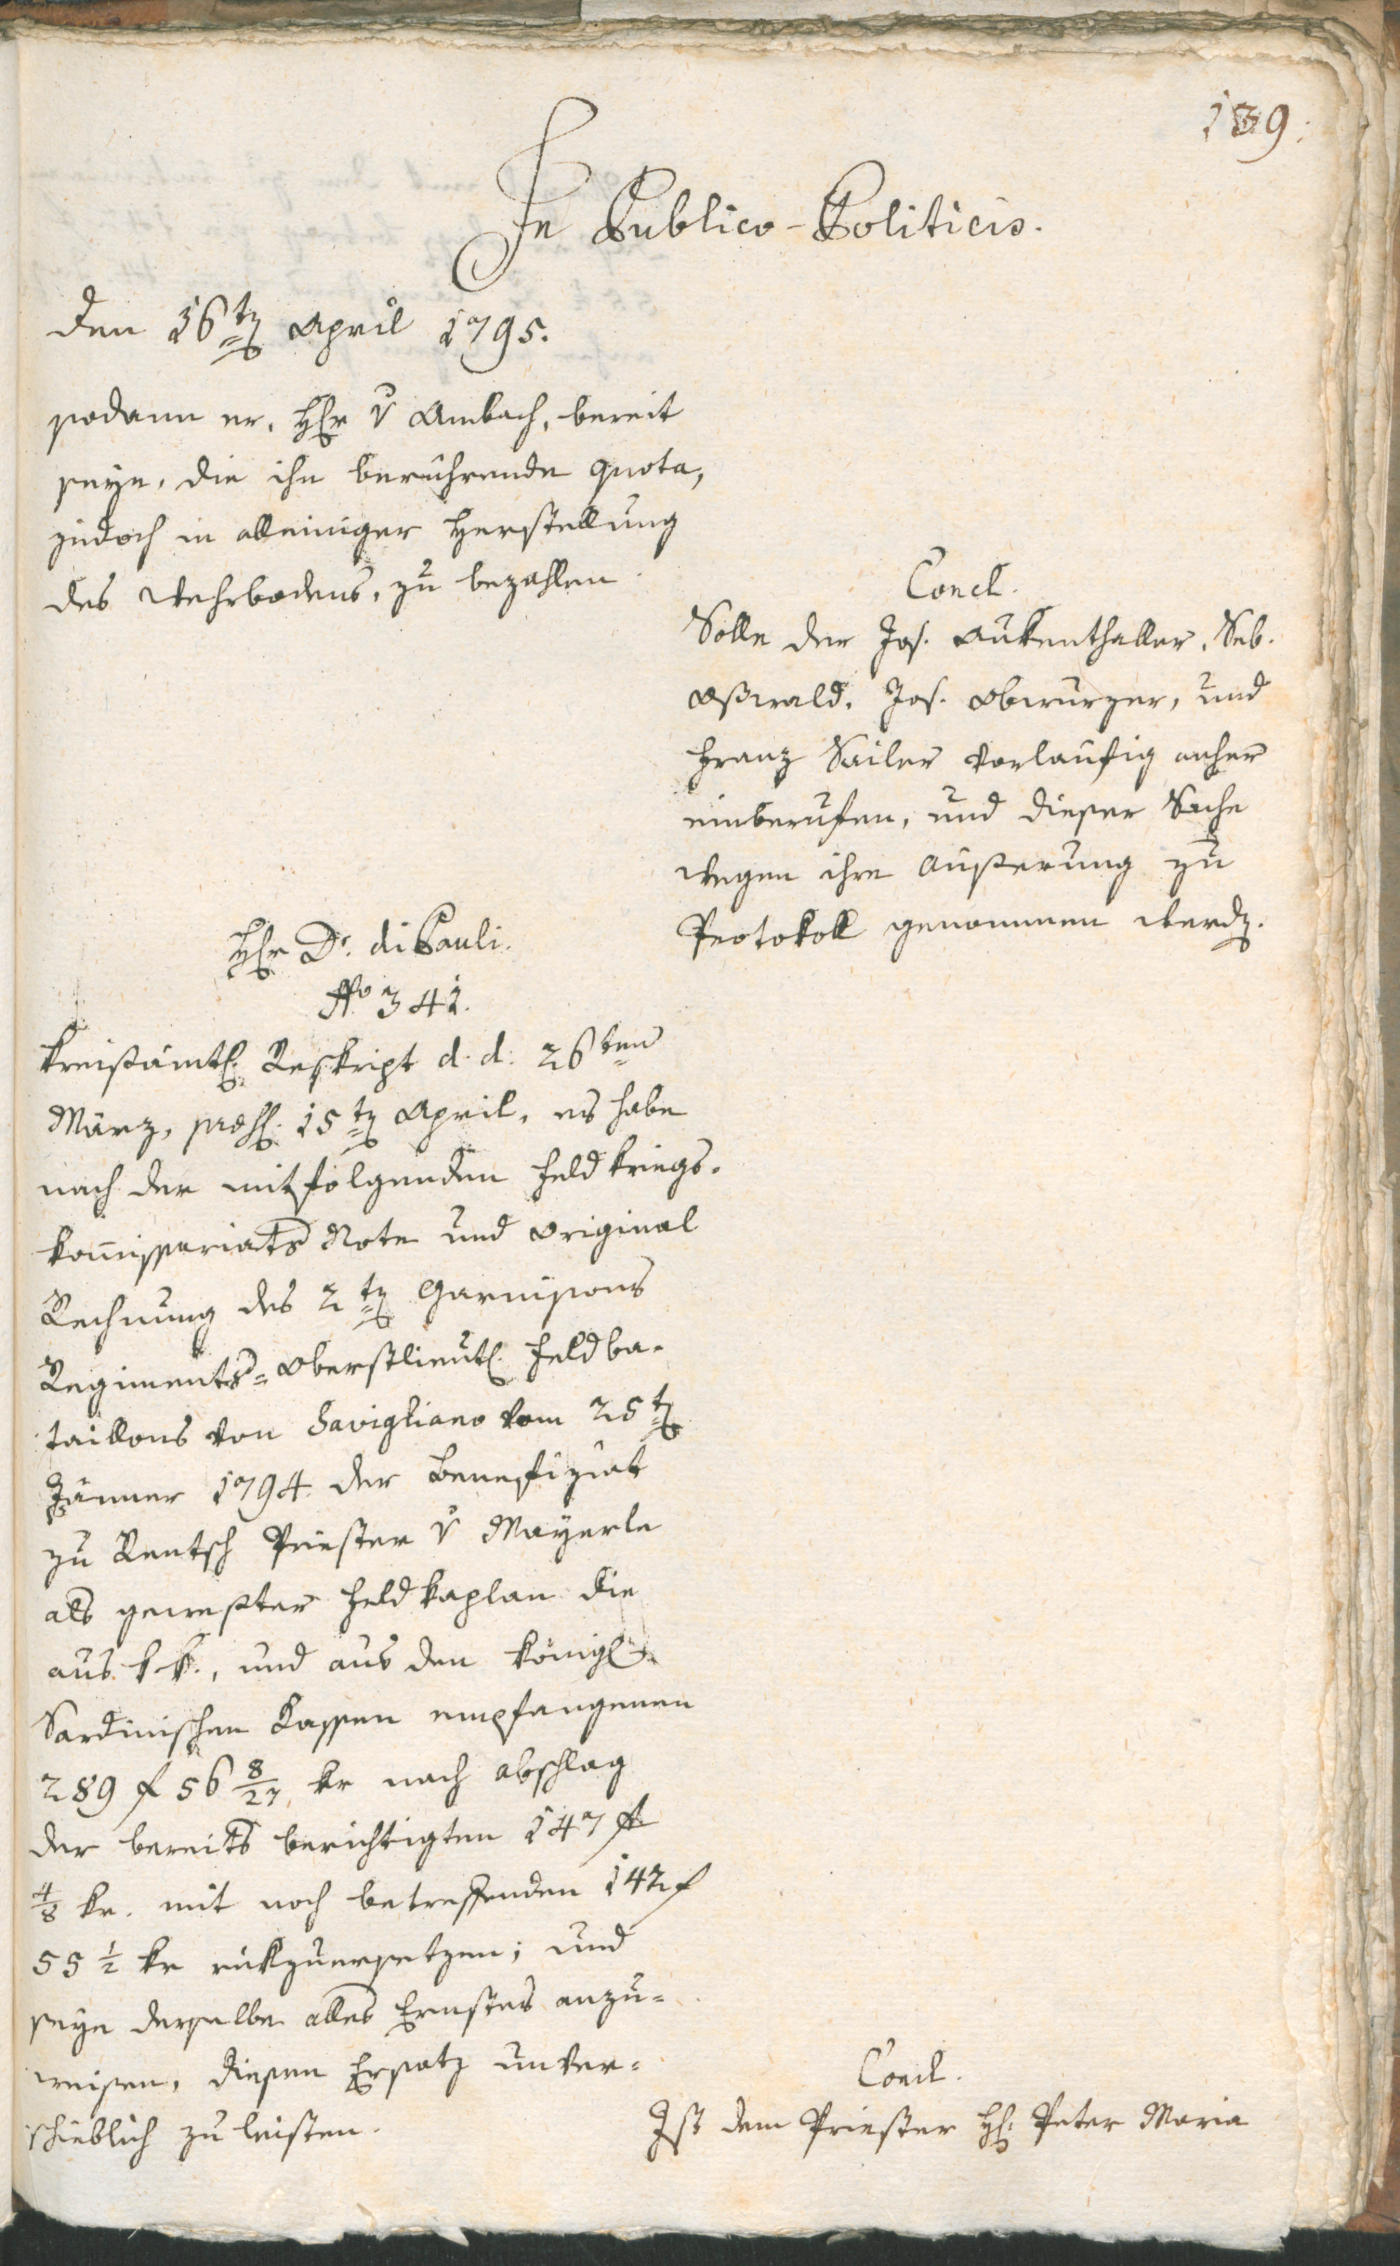 139.
In Publico-Politicis.
den 16ten April 1795.
sodann er, Hr v Ambach, bereit
seye, die ihn berührende quota,
jedoch in alleiniger Herstellung
des Wehrbodens, zu bezahlen.
Concl.
Solle der Jos. Aukenthaller, Seb.
Oßwald, Jos. Obwurzer, und
Franz Sailer vorläufig anher
einberufen, und dieser Sache
wegen ihre Außerung zu
Protokoll genommen werden.
Hr Dr. di Pauli.
No 341.
Kreißämtl. Reskript d. d. 26ten
März, præs. 15ten April, es habe
nach der mitfolgenden Feldkriegs-
kom̄issariats Note und Original
Rechnung des 2ten Garnisons
Regiments= Oberstlieutl. Feldba-
taillons von Savigliano vom 25ten
Jänner 1794 der Benefiziat
zu Rentsch Priester v Mayerle
als gewester Feldkaplan die
aus k. k., und aus den Königl.
Sardinischen Kassen empfangenen
289 f 56 8/27 kr nach abschlag
der bereits berichtigten 147 f
4/8 kr. mit noch betreffenden 142 f
55 1/2 kr rükzuersetzen; und
seye derselbe alles Ernstes anzu=
weisen, diesen Ersatz unver=
schieblich zu leisten.
Concl.
Ist dem Priester H. Peter Maria